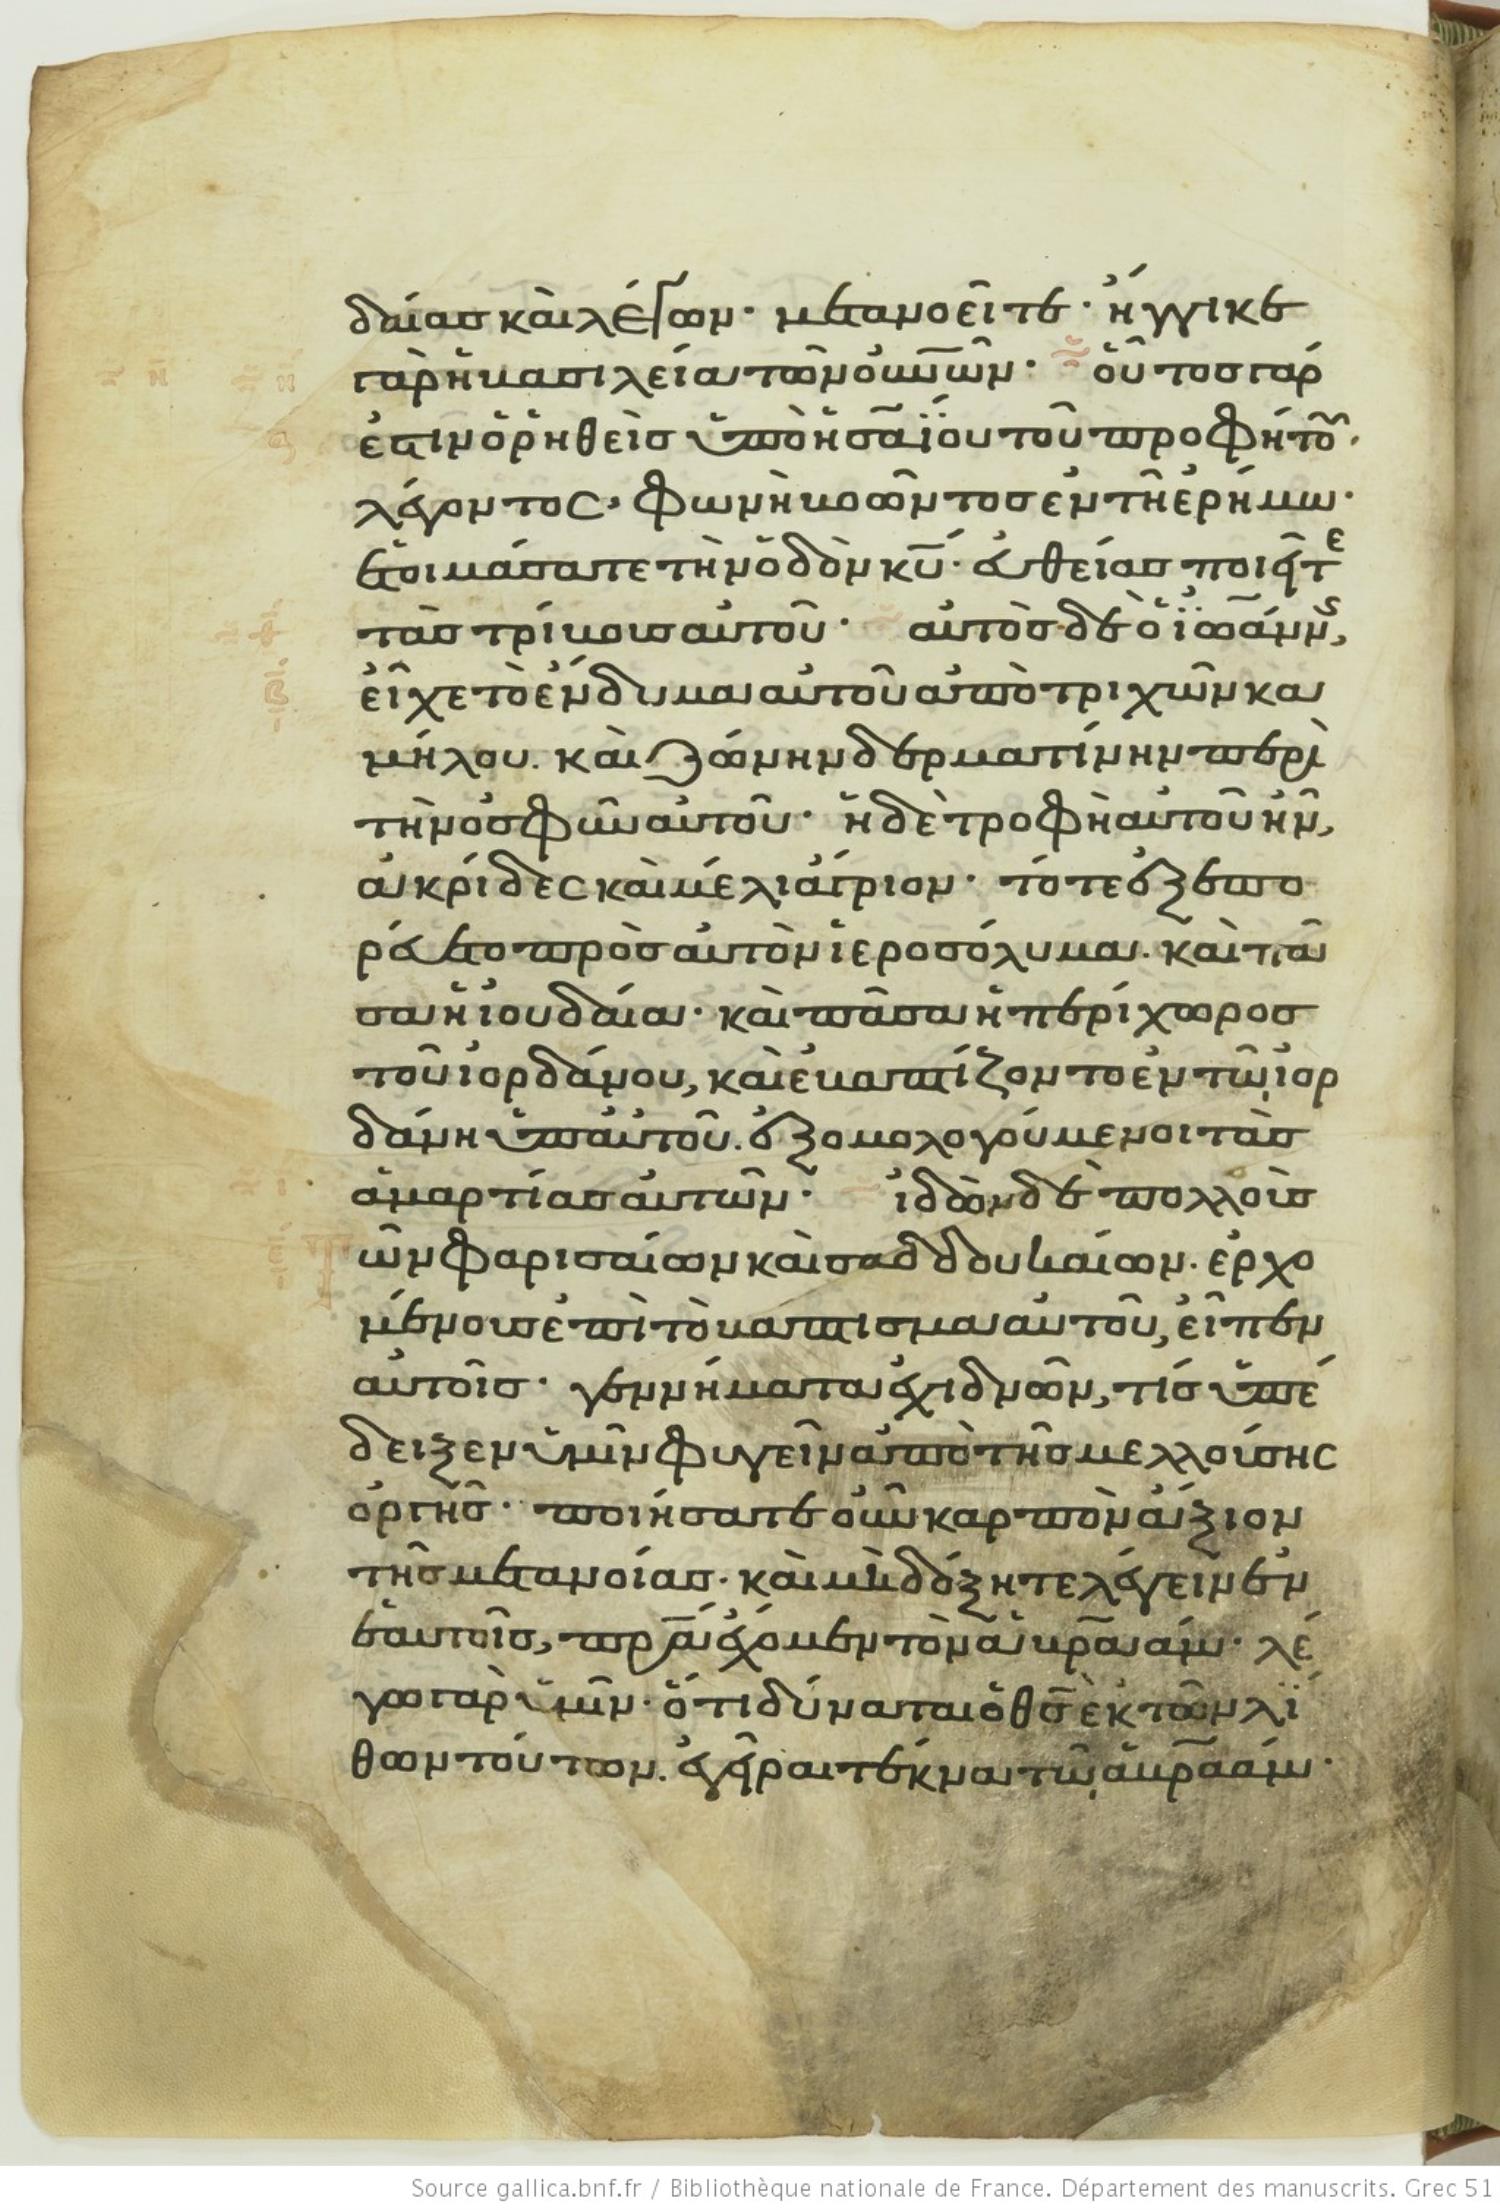 δαίας καὶ λέγων· μετανοεῖτε· ἤγγικε
γὰρ ἡ βασιλεία τῶν οὐνῶν· οὗτος γάρ
ἐστιν ὁ ῥηθεὶς ὑπὸ ἠσαΐου τοῦ προφήτου,
λέγοντος, φωνὴ βοῶντος ἐν τῆ ἐρήμω·
ἑτοιμάσατε τὴν ὁδὸν κυ· εὐθείας ποιεῖτε
τὰς τρίβους αὐτοῦ· αὐτὸς δὲ ὁ ἰωάννης,
εἶχε τὸ ἔνδυμα αὐτοῦ ἀπὸ τριχῶν κα
μήλου. καὶ ζώνην δερματίνην περὶ
τὴν ὀσφῦν αὐτοῦ· ἡ δὲ τροφὴ αὐτοῦ ἦν,
ἀκρίδες καὶ μέλι ἄγριον· τότε ἐξεπο
ρεύετο πρὸς αὐτὸν ἱεροσόλυμα. καὶ πᾶ
σα ἡ ἰουδαία· καὶ πᾶσα ἡ περίχωρος
τοῦ ἰορδάνου, καὶ ἐβαπτίζοντο ἐν τῶ ἰορ
δάνη ὑπ' αὐτοῦ. ἐξομολογούμενοι τὰς
ἁμαρτίας αὐτῶν· ἰδὼν δὲ πολλοὺς
ῶν φαρισαίων καὶ σαδδουκαίων. ἐρχο
μένους ἐπὶ τὸ βάπτισμα αὐτοῦ, εἶπεν
αὐτοῖς· γεννήματα ἐχιδνῶν, τίς ὑπέ
δειξεν ὑμῖν φυγεῖν ἀπὸ τῆς μελλούσης
ὀργῆς· ποιήσατε οὖν καρπὸν ἄξιον
τῆς μετανοίας. καὶ μὴ δόξητε λέγειν ἐν
ἑαυτοῖς, πρα ἔχομεν τὸν ἀβραάμ· λέ
γω γὰρ ὑμῖν· ὅτι δύναται ὁ θς ἐκ τῶν λί
θων τούτων. ἐγεῖραι τέκνα τῶ ἀβραάμ·
Source gallica.bnf.fr / Bibliothèque nationale de France. Département des manuscrits. Grec 51